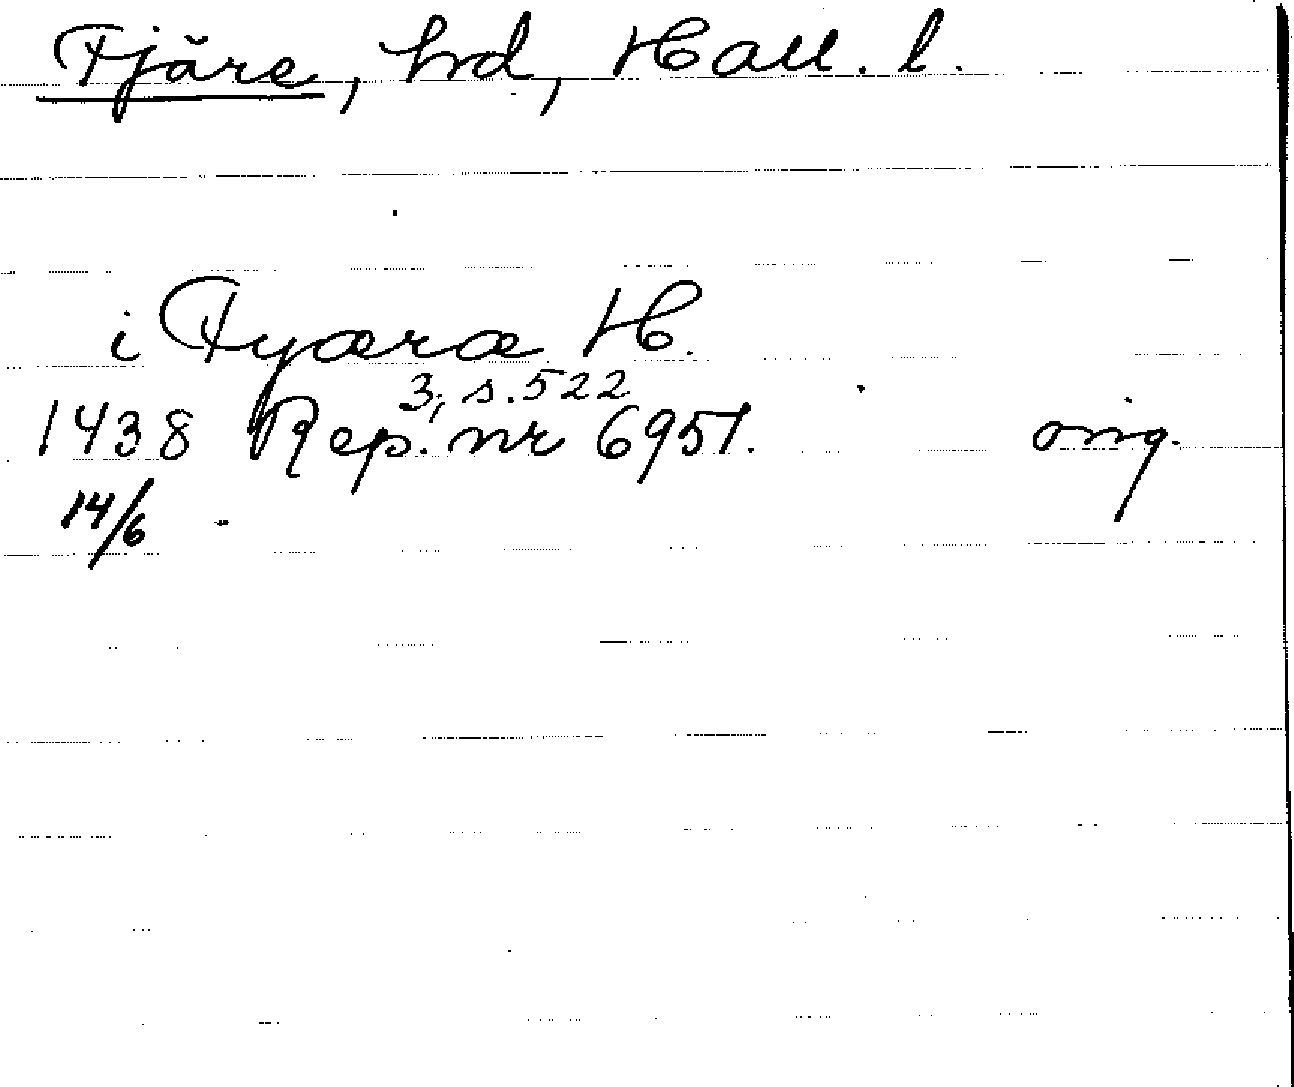 Fjäre, hrd, Hall. l.
i Fyæræ H.
3, s. 522
1438 Rep. nr 6951. orig.
14/6